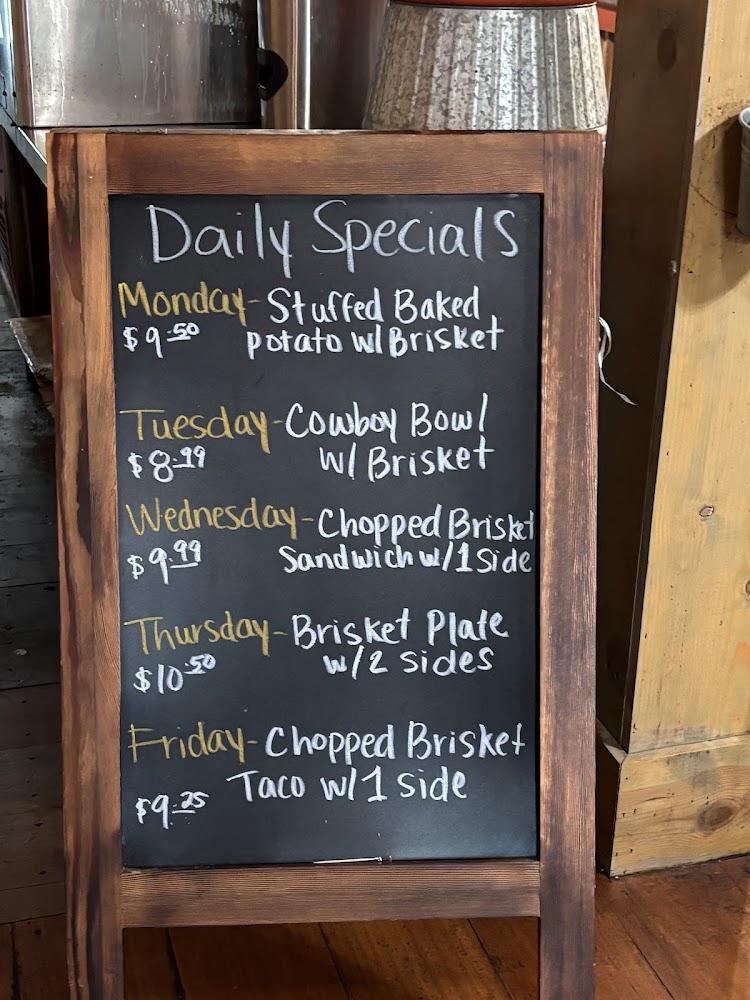 Daily Specials
Monday - Stuffed Baked
$9.50 potato w/ Brisket
Tuesday - Cowboy Bowl
$8.99 w/ Brisket
Wednesday - Chopped Brisket
$9.99 Sandwich w/ 1 Side
Thursday - Brisket Plate
$10.50 w/ 2 sides
Friday - Chopped Brisket
$9.25 Taco w/ 1 side